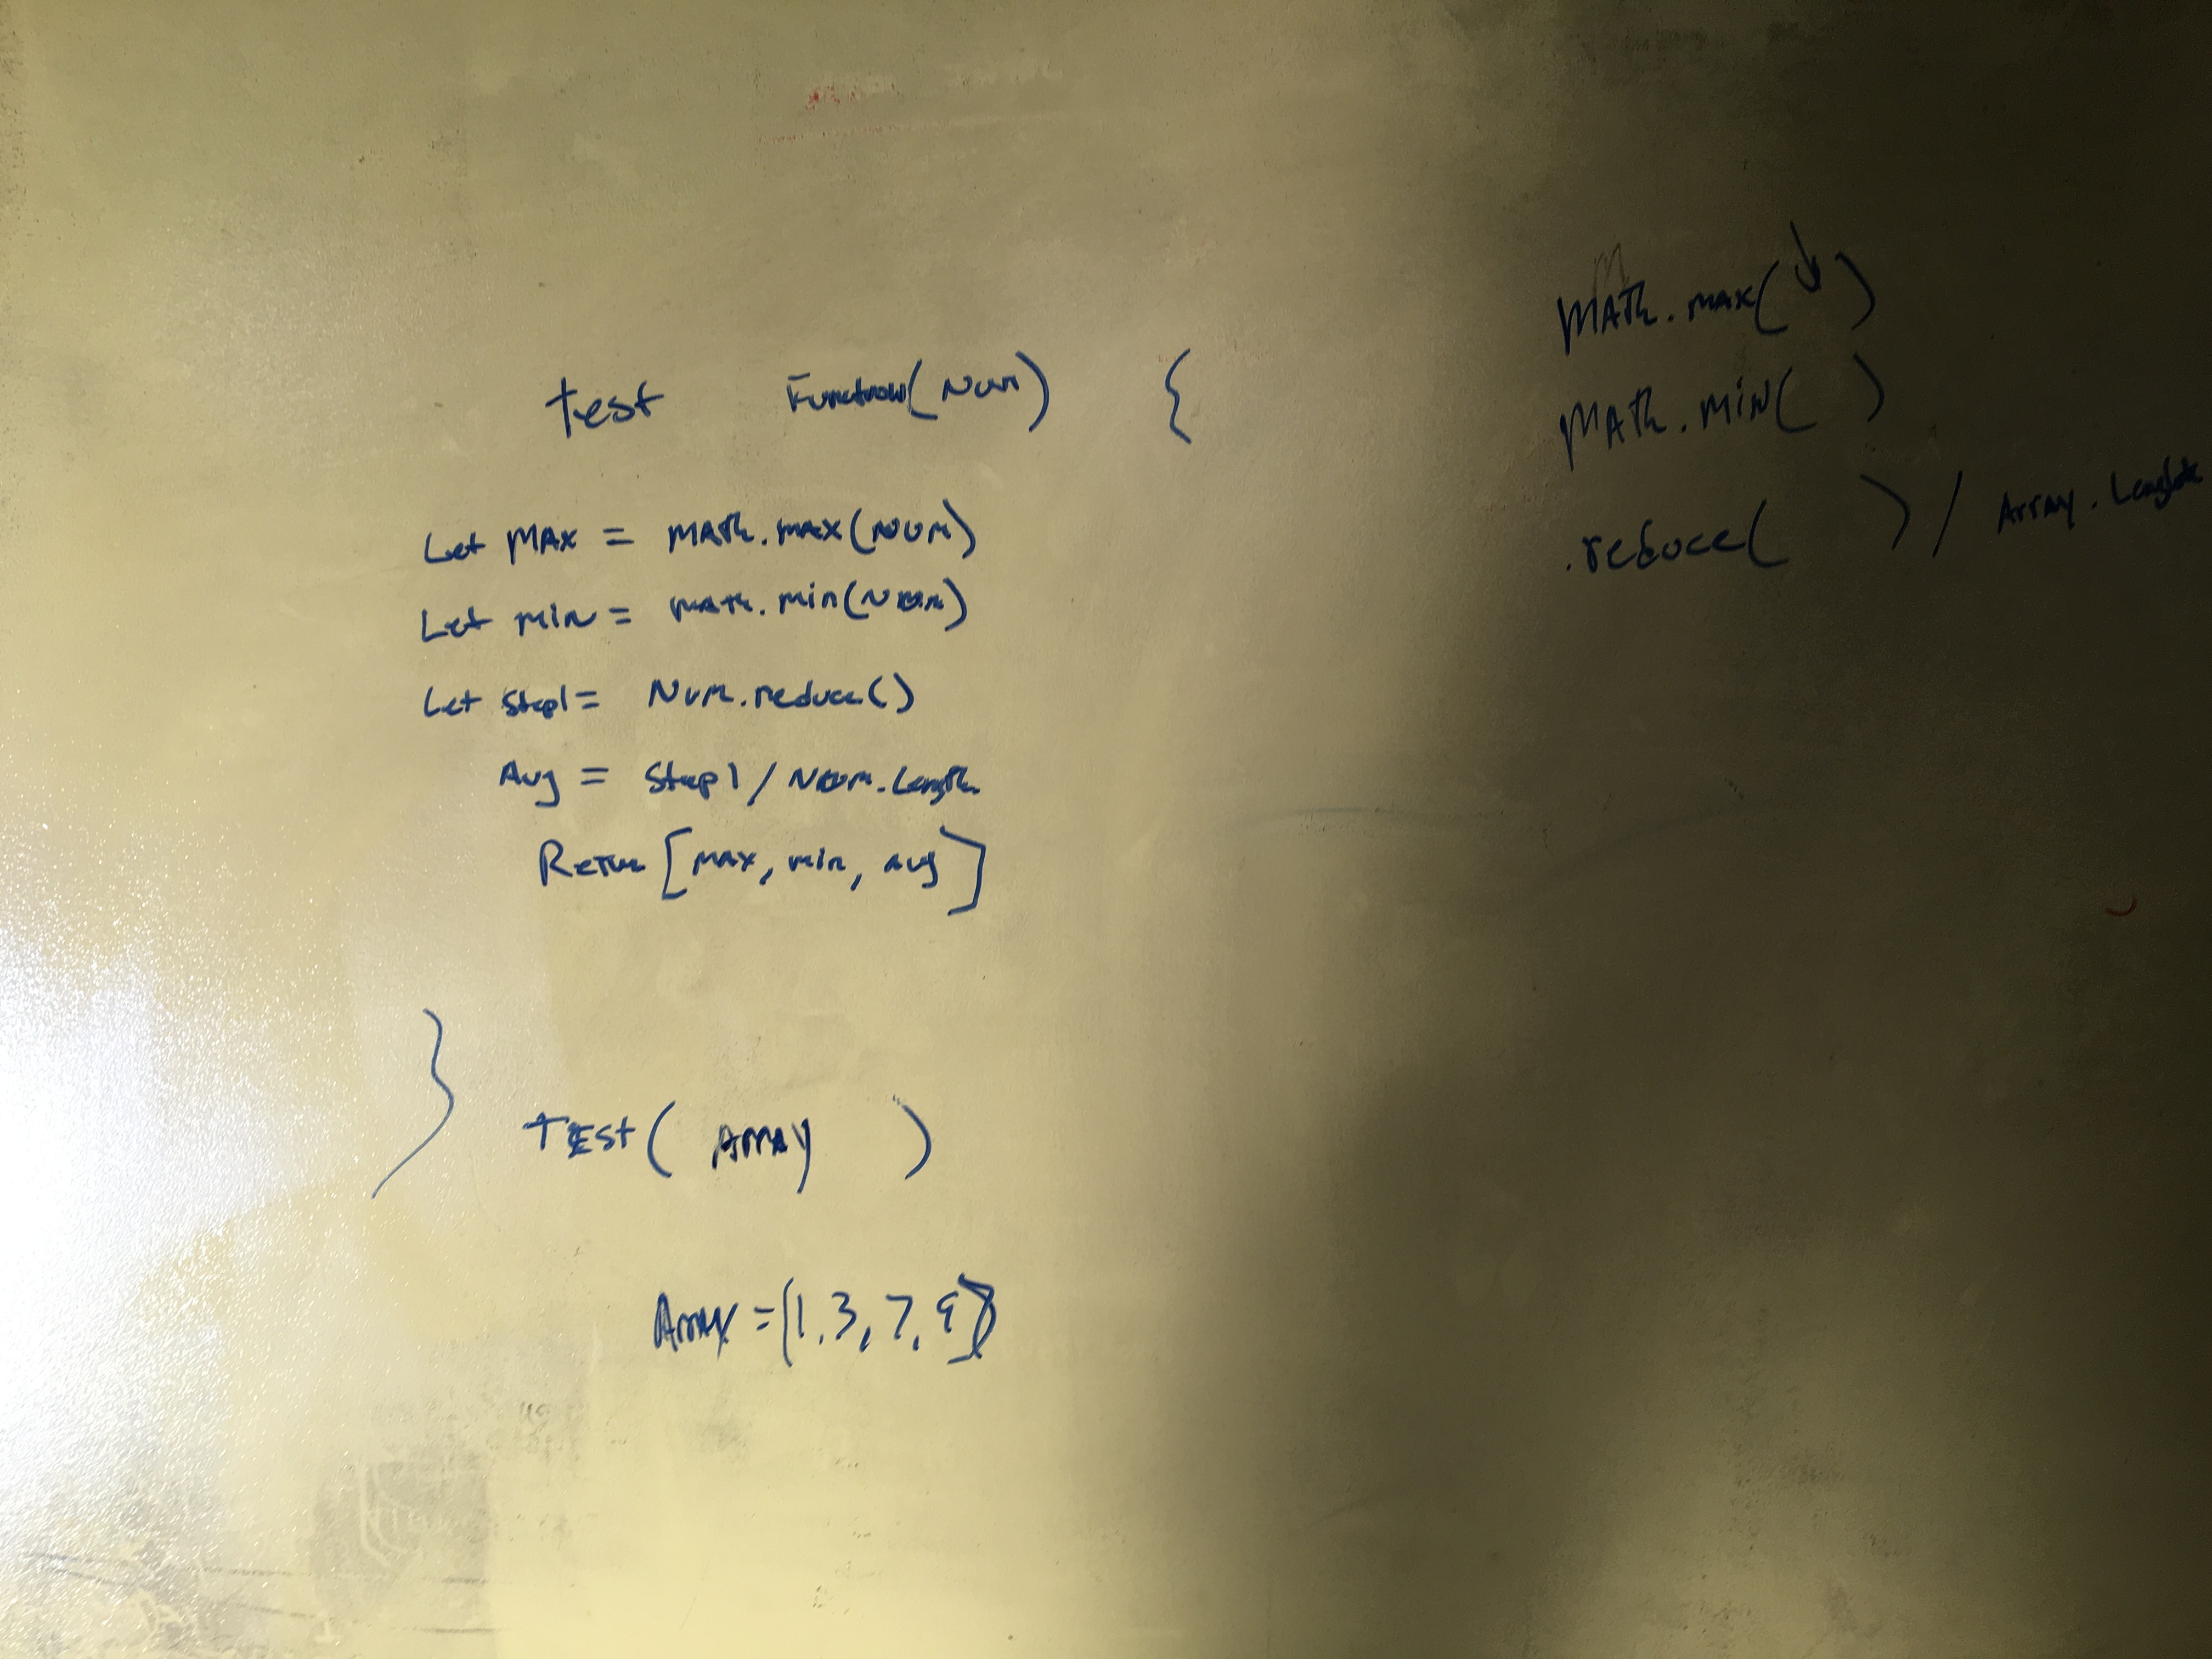 test Function(Num) {
Let MAX = MATh.max(NUM)
Let min = math.min(Num)
Let Step1 = Num.reduce()
Avg = Step1 / Num.Length
Return [max, min, avg]
}
TEst( ArrAy )
Array = [1, 3, 7, 9]
MATh.max( ↓ )
MATh.MiN( )
.reduce( ) / Array.Length